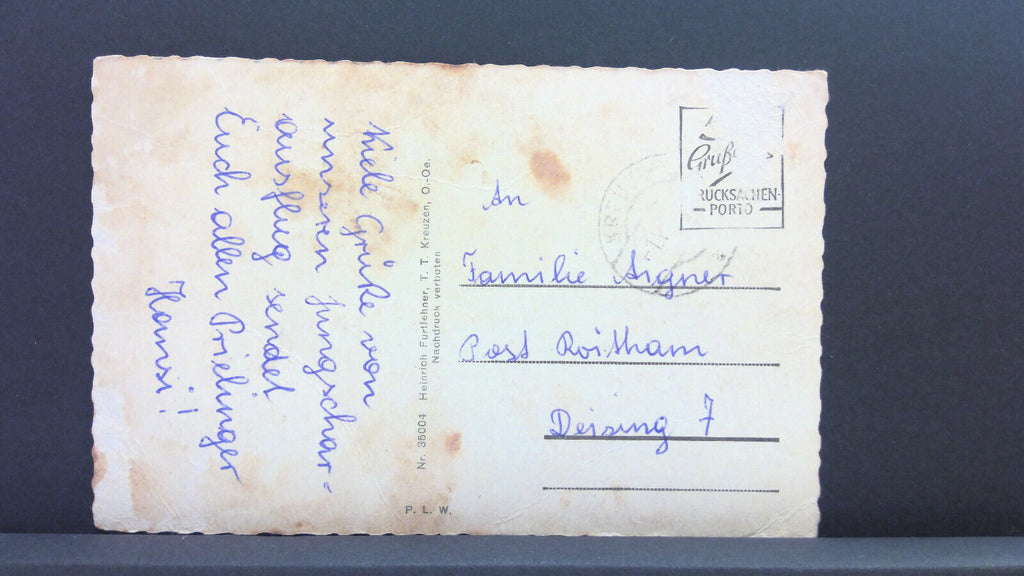 Viele Grüße von
unseren Jungschar-
ausflug sendet
Euch allen Prielinger
Hansi!
Nr. 35004 Heinrich Furtlehner, T. T. Kreuzen, O.-Oe.
Nachdruck verboten
P. L. W.
Gruß
RUCKSACHEN-
PORTO
An
Familie Aigner
Post Roitham
Deising 7